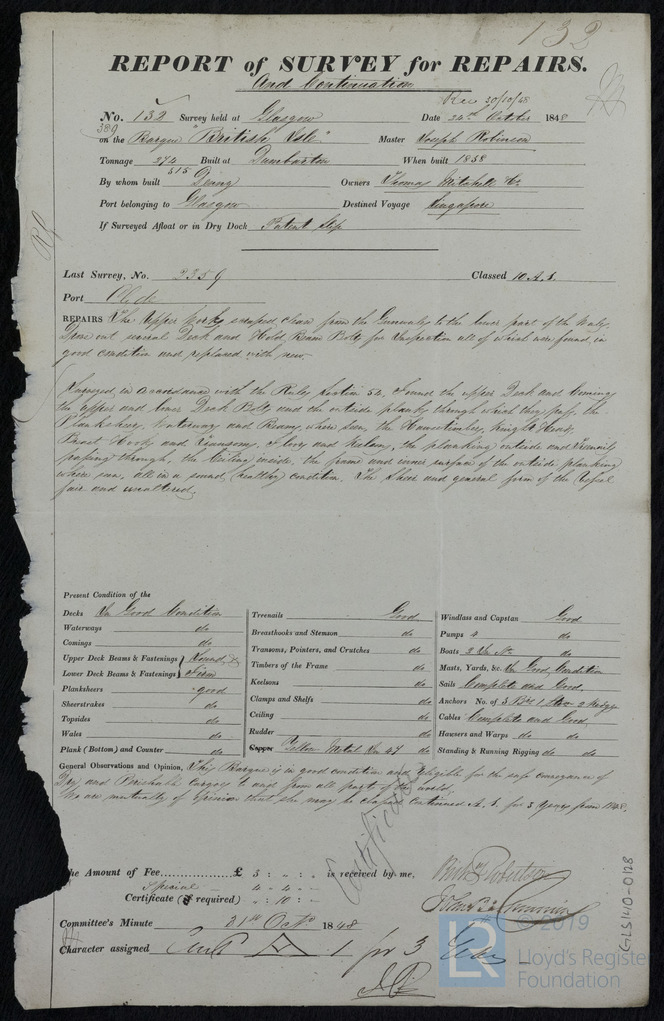 132
REPORT of SURVEY for REPAIRS.
And Continuation
Rec 30/10/48
No. 132 Survey held at Glasgow Date 24th October 1848
389
on the Barque "British Isle" Master Joseph Robinson
Tonnage 274 Built at Dumbarton When built 1838
315
By whom built Denny Owners Thomas Mitchell &c
Port belonging to Glasgow Destined Voyage Singapore
If Surveyed Afloat or in Dry Dock Patent Slip
Last Survey, No. 2359 Classed 10 A.1.
Port Clyde
REPAIRS The Upper Works scraped clean from the Gunwales to the lower part of the Wales,
Drove out several Deck and Hold Beam Bolts for Inspection all of which were found in
good condition and replaced with new.
Surveyed in accordance with the Rules Section 54, found the upper Deck and Comings
the upper and lower Deck Bolts and the outside planks through which they pass, the
Planksheers, Waterways and Beams, where seen, the Hawsetimbers, knight Heads,
Breast Hooks and Transoms, Floors and Keelsons, the planking outside and Treenails
passing through, the Ceiling inside, the frame and inner surface of the outside planking
where seen, all in a sound, healthy condition. The Sheer and general form of the Vessel
fair and unaltered.
Present Condition of the
Decks In Good Condition
Waterways do
Comings do
Upper Deck Beams & Fastenings } Sound &
Lower Deck Beams & Fastenings } Firm
Planksheers good
Sheerstrakes do
Topsides do
Wales do
Plank (Bottom) and Counter do
Treenails Good
Breasthooks and Stemson do
Transoms, Pointers, and Crutches do
Timbers of the Frame do
Keelsons do
Clamps and Shelfs do
Ceiling do
Rudder do
Copper Yellow Metal Nov 47 do
Windlass and Capstan Good
Pumps 4 do
Boats 2 In No. do
Masts, Yards, &c. In Good Condition
Sails Complete and Good
Anchors No. of 3 Brs 1 Strm 2 Kedge
Cables Complete and Good
Hawsers and Warps do do
Standing & Running Rigging do do
General Observations and Opinion, This Barque is in good condition and eligible for the safe conveyance of
Dry and Perishable Cargoes to and from all parts of the world.
We are mutually of opinion that she may be classed continued A.1. for 3 Years from 1848.
Certificate
the Amount of Fee............... £ 5 : " : " is received by me,
Special 4 : 4 : "
Certificate (if required) " : 10 : "
Committee's Minute 31st Octr 1848
Character assigned Cont A 1 for 3 Years
GLS140-0128
2019
LR
Lloyd's Register
Foundation